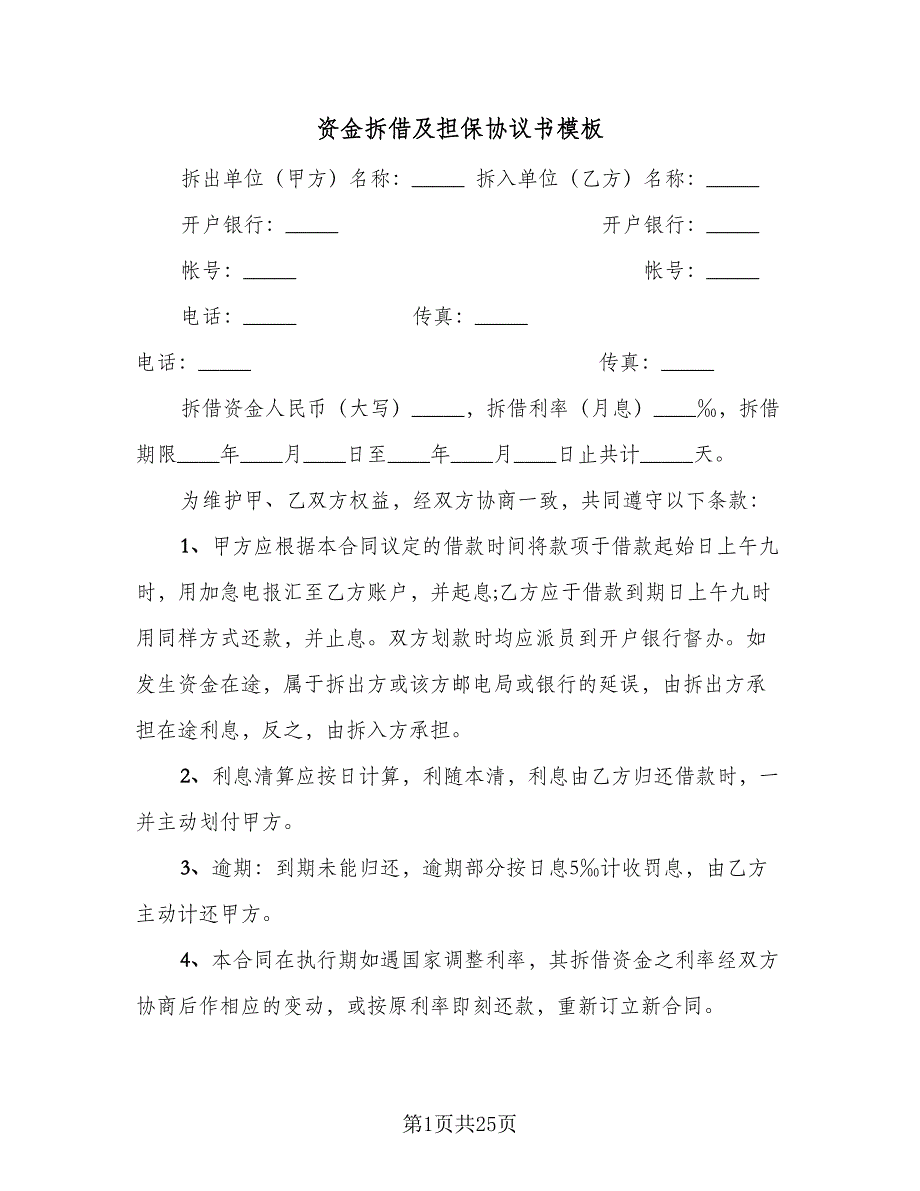 资金拆借及担保协议书模板
拆出单位（甲方）名称：_____ 拆入单位（乙方）名称：_____
开户银行：_____ 开户银行：_____
帐号：_____ 帐号：_____
电话：_____ 传真：_____
电话：_____ 传真：_____
拆借资金人民币（大写）_____，拆借利率（月息）____‰，拆借
期限____年____月____日至____年____月____日止共计_____天。
为维护甲、乙双方权益，经双方协商一致，共同遵守以下条款：
1、甲方应根据本合同议定的借款时间将款项于借款起始日上午九
时，用加急电报汇至乙方账户，并起息;乙方应于借款到期日上午九时
用同样方式还款，并止息。双方划款时均应派员到开户银行督办。如
发生资金在途，属于拆出方或该方邮电局或银行的延误，由拆出方承
担在途利息，反之，由拆入方承担。
2、利息清算应按日计算，利随本清，利息由乙方归还借款时，一
并主动划付甲方。
3、逾期：到期未能归还，逾期部分按日息5‰计收罚息，由乙方
主动计还甲方。
4、本合同在执行期如遇国家调整利率，其拆借资金之利率经双方
协商后作相应的变动，或按原利率即刻还款，重新订立新合同。
第1页共25页